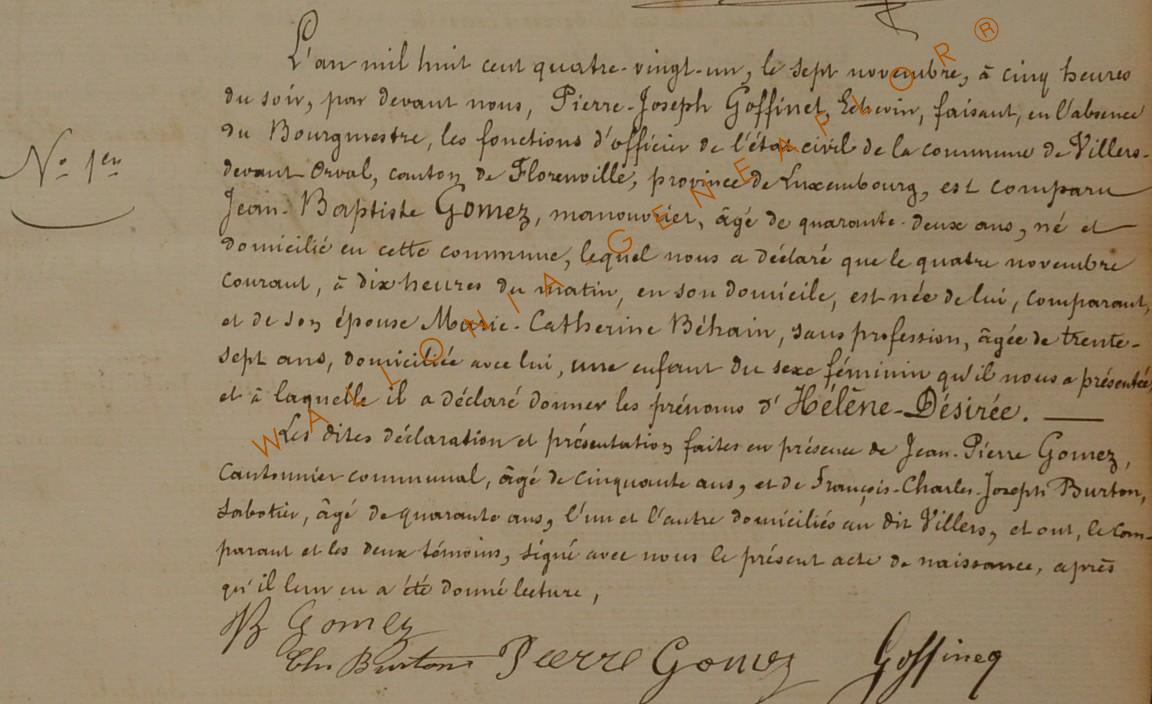 L'an mil huit cent quatre-vingt-un, le sept novembre, à cinq heures
du soir, par devant nous, Pierre-Joseph Goffinet, Echevin, faisant, en l'absence
du Bourgmestre, les fonctions d'officier de l'état civil de la commune de Villers-
N° 1er
devant Orval, canton de Florenville, province de Luxembourg, est comparu
Jean-Baptiste Gomez, manouvrier, âgé de quarante-deux ans, né et
domicilié en cette commune, lequel nous a déclaré que le quatre novembre
courant, à dix heures du matin, en son domicile, est née de lui, comparant,
et de son épouse Marie-Catherine Béhain, sans profession, âgée de trente-
sept ans, domiciliée avec lui, une enfant du sexe féminin qu'il nous a présentée,
et à laquelle il a déclaré donner les prénoms d'Hélène-Désirée.
Les dites déclaration et présentation faites en présence de Jean-Pierre Gomez,
Cantonnier communal, âgé de cinquante ans, et de François-Charles-Joseph Burton,
Sabotier, âgé de quarante ans, l'un et l'autre domiciliés au dit Villers, et ont, le com-
parant et les deux témoins, signé avec nous le présent acte de naissance, après
qu'il leur en a été donné lecture,
JB Gomez
Chs Burton Pierre Gomez Goffineq
WALLONIA-GENEAFLOR®